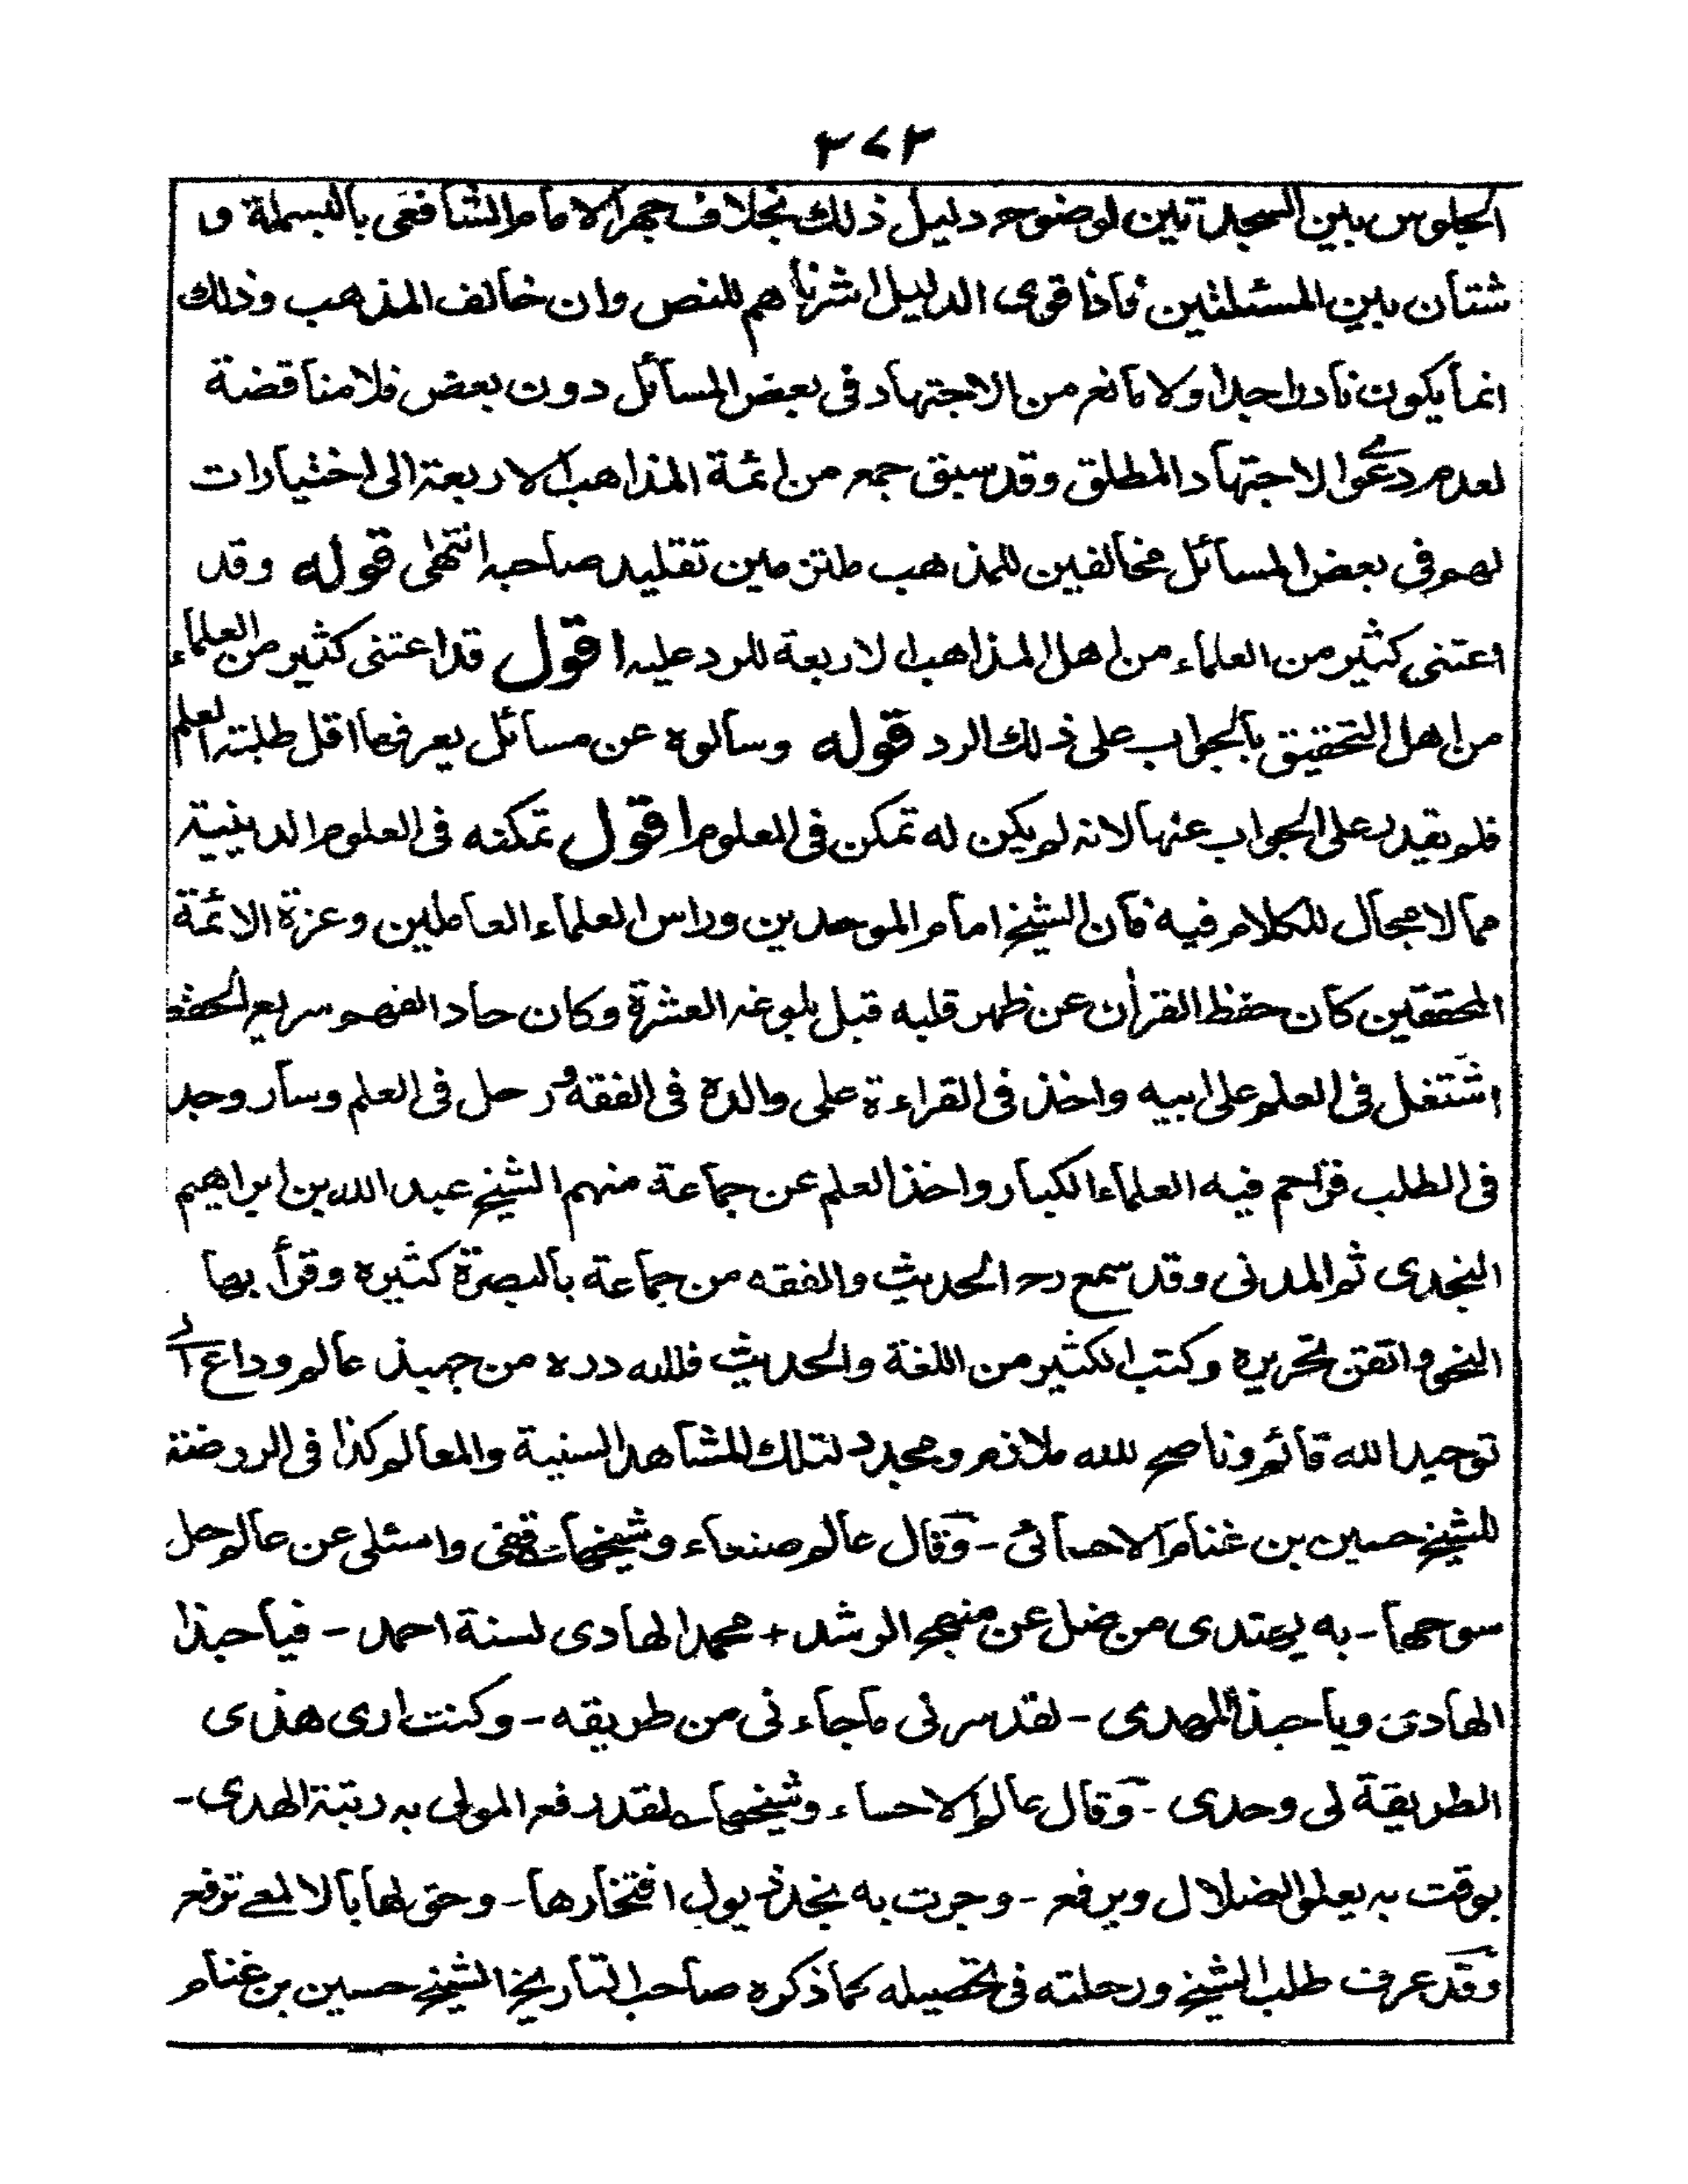 ٣٧٣
الجلوس بين السجدتين لوضوح دليل ذلك بخلاف جهر الامام الشافعى بالبسملة و
شتان بين المسئلتين فاذا قوى الدليل اشرناهم للنص وان خالف المذهب وذلك
انما يكون نادرا جدا ولا مانع من الاجتهاد فى بعض المسائل دون بعض فلا مناقضة
لعدم دعوى الاجتهاد المطلق وقد سبق جمع من ائمة المذاهب الاربعة الى اختيارات
لهم فى بعض المسائل مخالفين للمذهب ملتزمين تقليد صاحبه انتهى قوله وقد
اعتنى كثير من العلماء من اهل المذاهب الاربعة للرد عليه اقول قد اعتنى كثير من العلماء
من اهل التحقيق بالجواب على ذلك الرد قوله وسالوه عن مسائل يعرفها اقل طلبته العلم
فلم يقدر على الجواب عنها لانه لم يكن له تمكن فى العلوم اقول تمكنه فى العلوم الدينية
مما لا مجال للكلام فيه فان الشيخ امام الموحدين وراس العلماء العاملين وعزة الائمة
المحققين كان حفظ القرأن عن ظهر قلبه قبل بلوغه العشرة وكان حاد الفهم سريع الحفظ
اشتغل فى العلم على ابيه واخذ فى القراءة على والده فى الفقه ورحل فى العلم وسار وجد
فى الطلب فزاحم فيه العلماء الكبار واخذ العلم عن جماعة منهم الشيخ عبد الله بن ابراهيم
النجدى ثم المدنى وقد سمع رحه الحديث والفقه من جماعة بالبصرة كثيره وقرأ بها
النحو واتقن تحريره وكتب الكثير من اللغة والحديث فلله دره من جهبذ عالم وداع الى
توحيد الله قائم وناصح لله ملازم ومجدد لتلك المشاهد السنية والمعالم كذا فى الروضة
للشيخ حسين بن غنام الاحسائى - وقال عالم صنعاء وشيخها قفى واسئلى عن عالم حل
سوحها - به يهتدى من ضل عن منهج الرشد + محمد الهادى لسنة احمد - فيا حبذا
الهادى ويا حبذا المهدى - لقد سرنى ماجاءنى من طريقه - وكنت ارى هذى
الطريقة لى وحدى - وقال عالم الاحساء وشيخها لقد رفع المولى به رتبة الهدى -
بوقت به يعلو الضلال ويرفع - وجرت به نجد ذيول افتخارها - وحق لها بالالمعى ترفع
وقد عرف طلب الشيخ ورحلته فى تحصيله كما ذكره صاحب التاريخ الشيخ حسين بن غنام